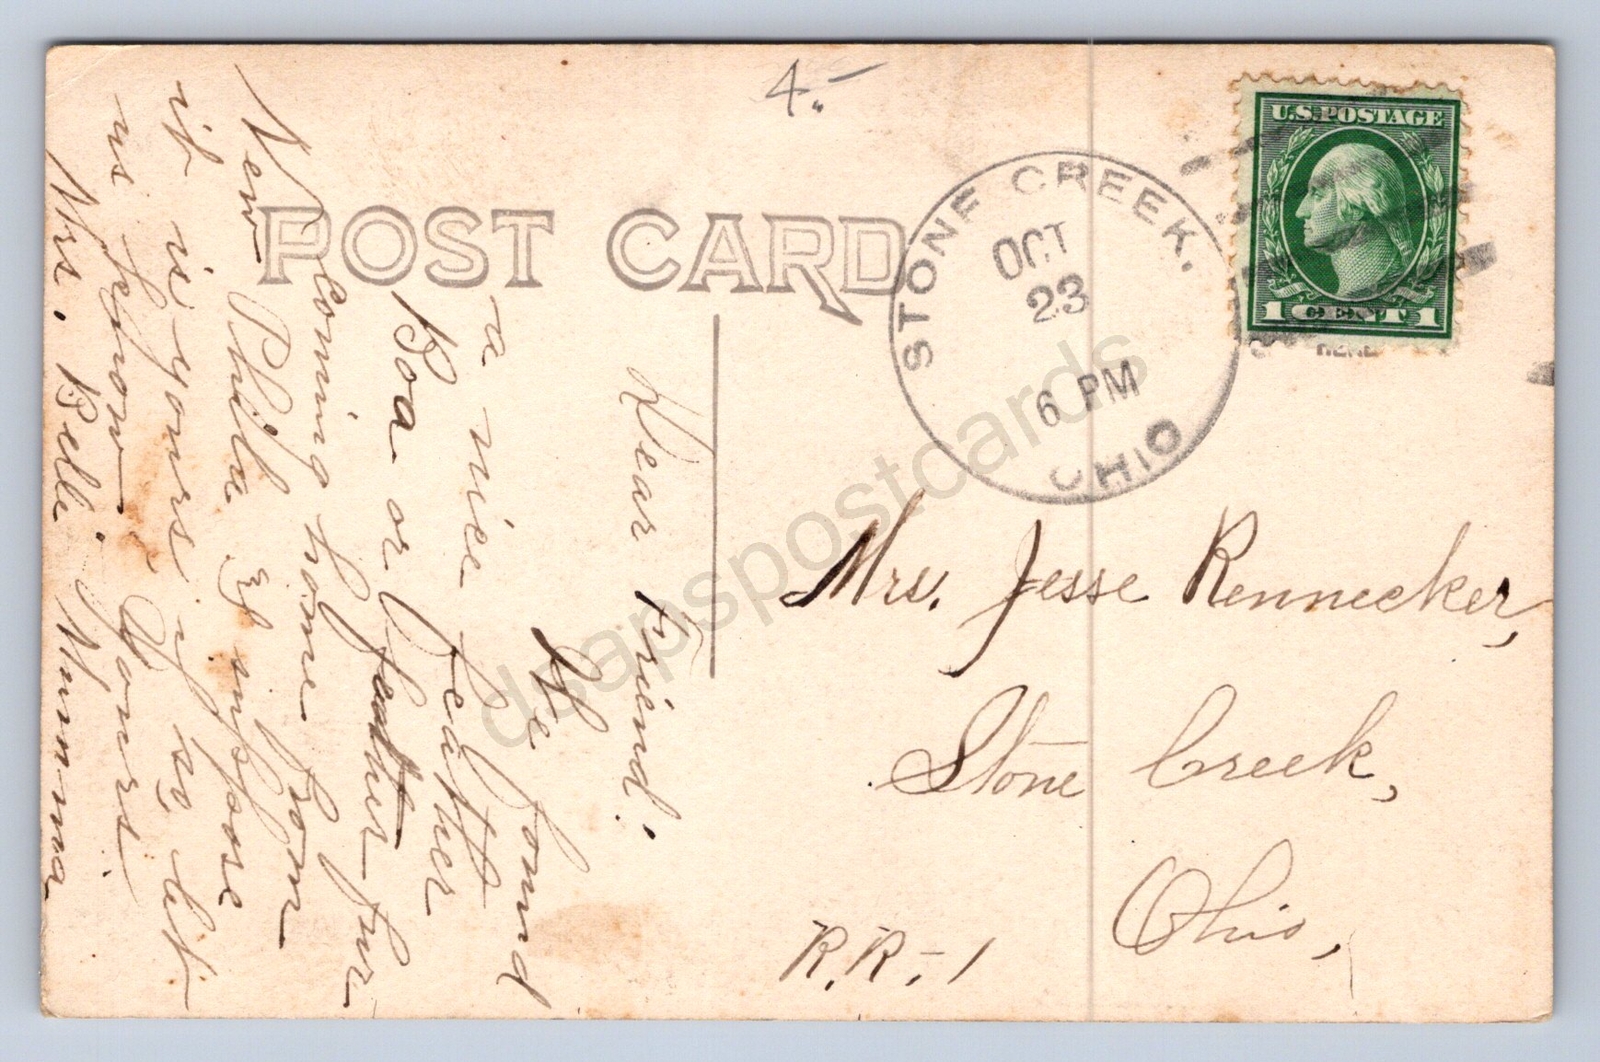 4.-
POST CARD
STONE CREEK,
OCT
23
6 PM
OHIO
U.S. POSTAGE
1 CENT 1
Dear Friend:
We found
a nice feather
Boa or feather fur
Coming home from
New Phila & suppose
it is yours if so, let
us know. Yours
Mrs. Belle Mumma
Mrs. Jesse Rennecker,
Stone Creek,
Ohio,
R.R.-1
dsapspostcards